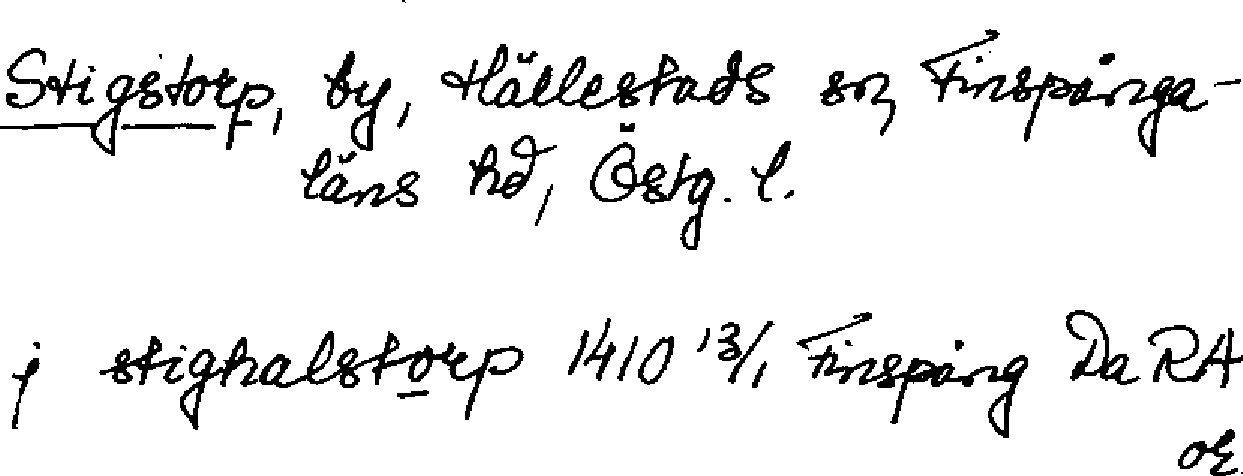 Stigstorp, by, Hällestads sn, Finspånga-
läns hd, Östg. l.
j stighalstorp 1410 13/1 Finspång Da RA
or